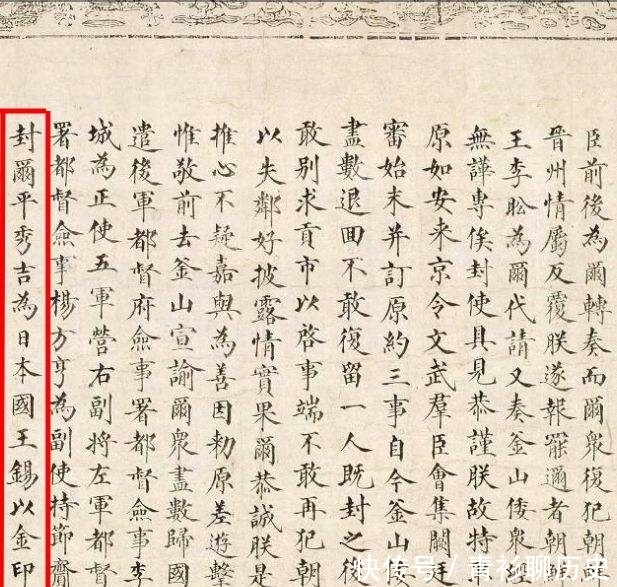 臣前後為爾轉奏而爾衆復犯朝
晉州情屬反覆朕遂報罷邇者朝
王李昖為爾代請又奏釜山倭衆
無譁專俟封使具見恭謹朕故特
原如安来京令文武羣臣會集闕廷
審始末并訂原約三事自今釜山
盡數退回不敢復留一人既封之後
敢别求貢市以啓事端不敢再犯朝
以失鄰好披露情實果爾恭誠朕是
推心不疑嘉與為善因勑原差遊擊
惟敬前去釜山宣諭爾衆盡數歸國
遣後軍都督府僉事署都督僉事李
城為正使五軍營右副将左軍都督
署都督僉事楊方亨為副使持節齎
封爾平秀吉為日本國王錫以金印
快传号/青衫聊历史